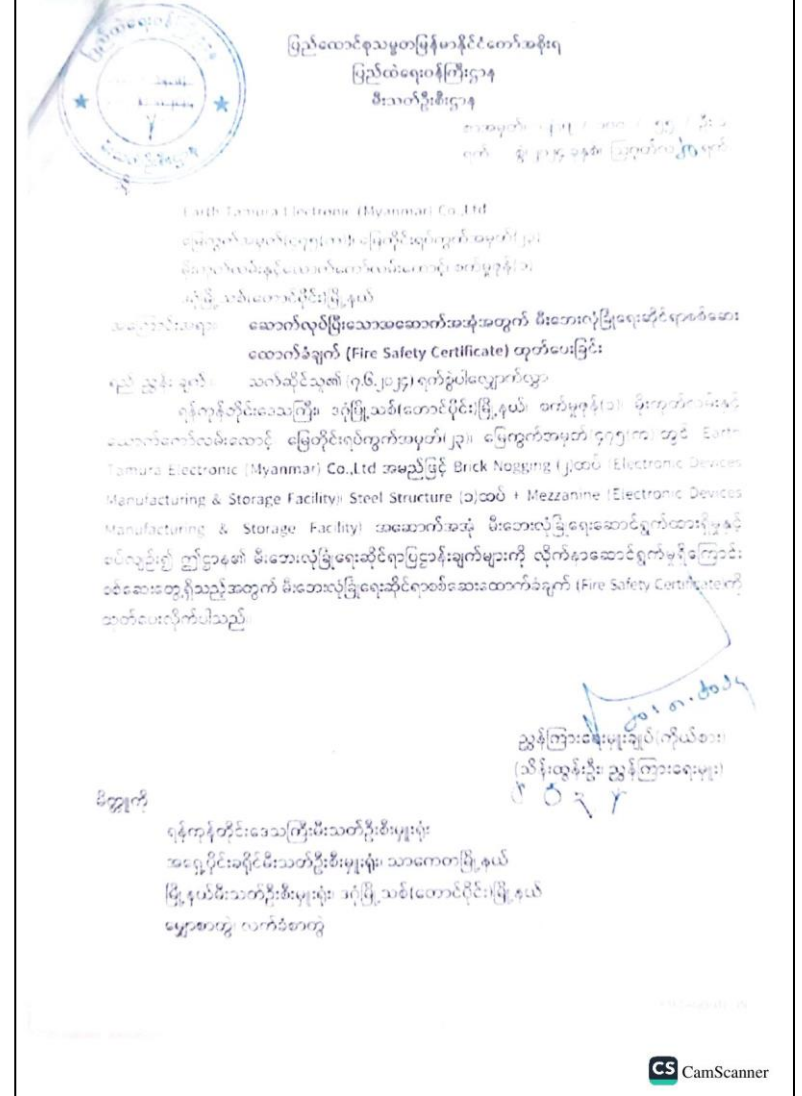 ပြည်ထောင်စုသမ္မတမြန်မာနိုင်ငံတော်အစိုးရ
ပြည်ထဲရေးဝန်ကြီးဌာန
မီးသတ်ဦးစီးဌာန
စာအမှတ်၊
ရက် စွဲ၊ ၂၀၂၄ ခုနှစ်၊ ဩဂုတ်လ ရက်
သို့
Earth Tamura Electronic (Myanmar) Co.,Ltd
မြေကွက်အမှတ်(၄၇၅(က))၊ မြေတိုင်းရပ်ကွက်အမှတ်(၂၃)
မိုးကုတ်လမ်းနှင့်ယောက်ကော်လမ်းထောင့်၊ စက်မှုဇုန်(၁)
ဒဂုံမြို့သစ်(တောင်ပိုင်း)မြို့နယ်
အကြောင်းအရာ၊ ဆောက်လုပ်ပြီးသောအဆောက်အအုံအတွက် မီးဘေးလုံခြုံရေးဆိုင်ရာစစ်ဆေး
ထောက်ခံချက် (Fire Safety Certificate) ထုတ်ပေးခြင်း
ရည် ညွှန်း ချက် ၊ သက်ဆိုင်သူ၏ (၇.၆.၂၀၂၄) ရက်စွဲပါလျှောက်လွှာ
ရန်ကုန်တိုင်းဒေသကြီး၊ ဒဂုံမြို့သစ်(တောင်ပိုင်း)မြို့နယ်၊ စက်မှုဇုန်(၁)၊ မိုးကုတ်လမ်းနှင့်
ယောက်ကော်လမ်းထောင့် မြေတိုင်းရပ်ကွက်အမှတ်(၂၃)၊ မြေကွက်အမှတ်(၄၇၅(က) တွင် Earth
Tamura Electronic (Myanmar) Co.,Ltd အမည်ဖြင့် Brick Nogging (၂)ထပ် (Electronic Devices
Manufacturing & Storage Facility)၊ Steel Structure (၁)ထပ် + Mezzanine (Electronic Devices
Manufacturing & Storage Facility) အဆောက်အအုံ မီးဘေးလုံခြုံရေးဆောင်ရွက်ထားရှိမှုနှင့်
စပ်လျဉ်း၍ ဤဌာန၏ မီးဘေးလုံခြုံရေးဆိုင်ရာပြဋ္ဌာန်းချက်များကို လိုက်နာဆောင်ရွက်မှုရှိကြောင်း
စစ်ဆေးတွေ့ရှိသည့်အတွက် မီးဘေးလုံခြုံရေးဆိုင်ရာစစ်ဆေးထောက်ခံချက် (Fire Safety Certificate)ကို
ထုတ်ပေးလိုက်ပါသည်
ညွှန်ကြားရေးမှူးချုပ်(ကိုယ်စား)
(သိန်းထွန်းဦး၊ ညွှန်ကြားရေးမှူး)
မိတ္တူကို
ရန်ကုန်တိုင်းဒေသကြီးမီးသတ်ဦးစီးမှူးရုံး
အရှေ့ပိုင်းခရိုင်မီးသတ်ဦးစီးမှူးရုံး၊ သာကေတမြို့နယ်
မြို့နယ်မီးသတ်ဦးစီးမှူးရုံး၊ ဒဂုံမြို့သစ်(တောင်ပိုင်း)မြို့နယ်
မျှောစာတွဲ၊ လက်ခံစာတွဲ
CS CamScanner